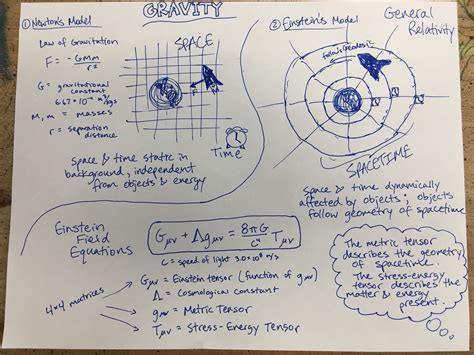 GRAVITY
① Newton's Model
Law of Gravitation
F = -GMm
r²
G = gravitational
constant
M, m = masses
r = separation
distance
SPACE
Time
space & time static in
background; independent
from objects & energy
② Einstein's Model
General
Relativity
follows Geodesic
SPACETIME
space & time dynamically
affected by objects; objects
follow geometry of spacetime
Einstein
Field
Equations
Gμν + Λgμν = 8πG Tμν
c⁴
c = speed of light 3.0×10⁸ m/s
4×4 matrices
Gμν = Einstein tensor (function of gμν)
Λ = Cosmological constant
gμν = Metric Tensor
Tμν = Stress-Energy Tensor
The metric tensor
describes the geometry
of spacetime.
The stress-energy
tensor describes the
matter & energy
present.